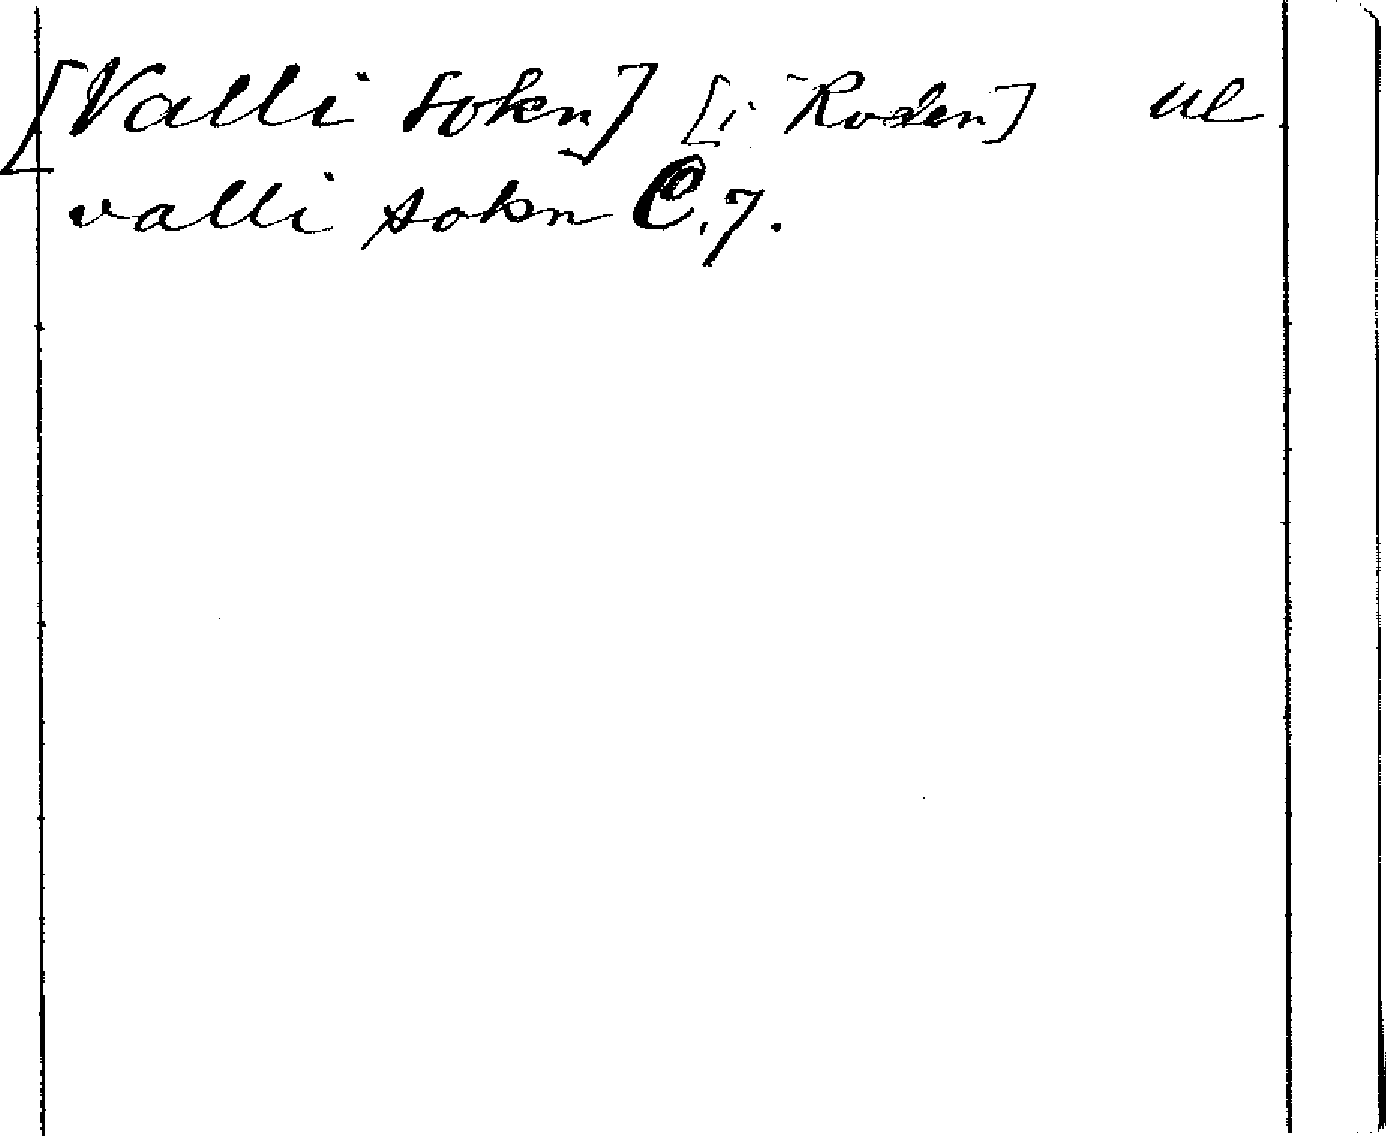 [Valli sokn] [i Roden] Ul
valli sokn C. 7.